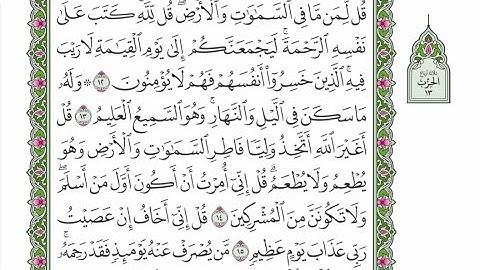 قُل لِّمَن مَّا فِي السَّمَاوَاتِ وَالْأَرْضِ ۖ قُل لِّلَّهِ ۚ كَتَبَ عَلَىٰ
نَفْسِهِ الرَّحْمَةَ ۚ لَيَجْمَعَنَّكُمْ إِلَىٰ يَوْمِ الْقِيَامَةِ لَا رَيْبَ
فِيهِ ۚ الَّذِينَ خَسِرُوا أَنفُسَهُمْ فَهُمْ لَا يُؤْمِنُونَ ١٢ ۞ وَلَهُ
مَا سَكَنَ فِي اللَّيْلِ وَالنَّهَارِ ۚ وَهُوَ السَّمِيعُ الْعَلِيمُ ١٣ قُلْ
أَغَيْرَ اللَّهِ أَتَّخِذُ وَلِيًّا فَاطِرِ السَّمَاوَاتِ وَالْأَرْضِ وَهُوَ
يُطْعِمُ وَلَا يُطْعَمُ ۗ قُلْ إِنِّي أُمِرْتُ أَنْ أَكُونَ أَوَّلَ مَنْ أَسْلَمَ ۖ
وَلَا تَكُونَنَّ مِنَ الْمُشْرِكِينَ ١٤ قُلْ إِنِّي أَخَافُ إِنْ عَصَيْتُ
رَبِّي عَذَابَ يَوْمٍ عَظِيمٍ ١٥ مَّن يُصْرَفْ عَنْهُ يَوْمَئِذٍ فَقَدْ رَحِمَهُ ۚ
ثلاثة أرباع
الحزب
١٣